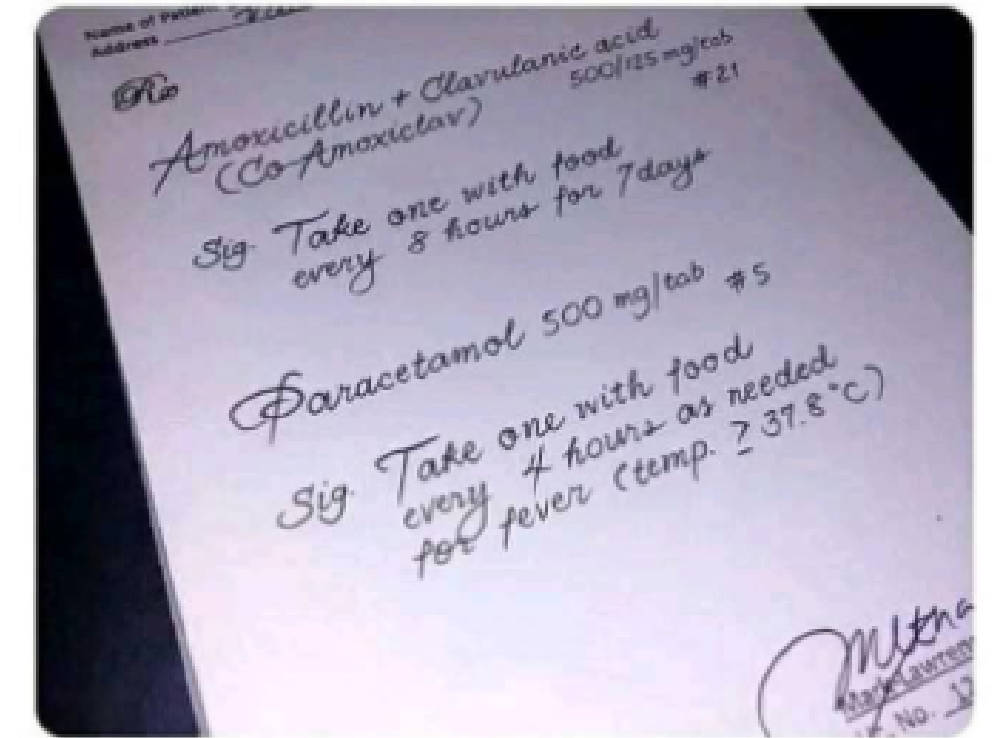 Name of Patient
Address
Rx
Amoxicillin + Clavulanic acid
500/125 mg/tab
(Co-Amoxiclav)
#21
Sig. Take one with food
every 8 hours for 7 days
Paracetamol 500 mg/tab #5
Sig. Take one with food
every 4 hours as needed
for fever (temp. ≥ 37.8°C)
No.